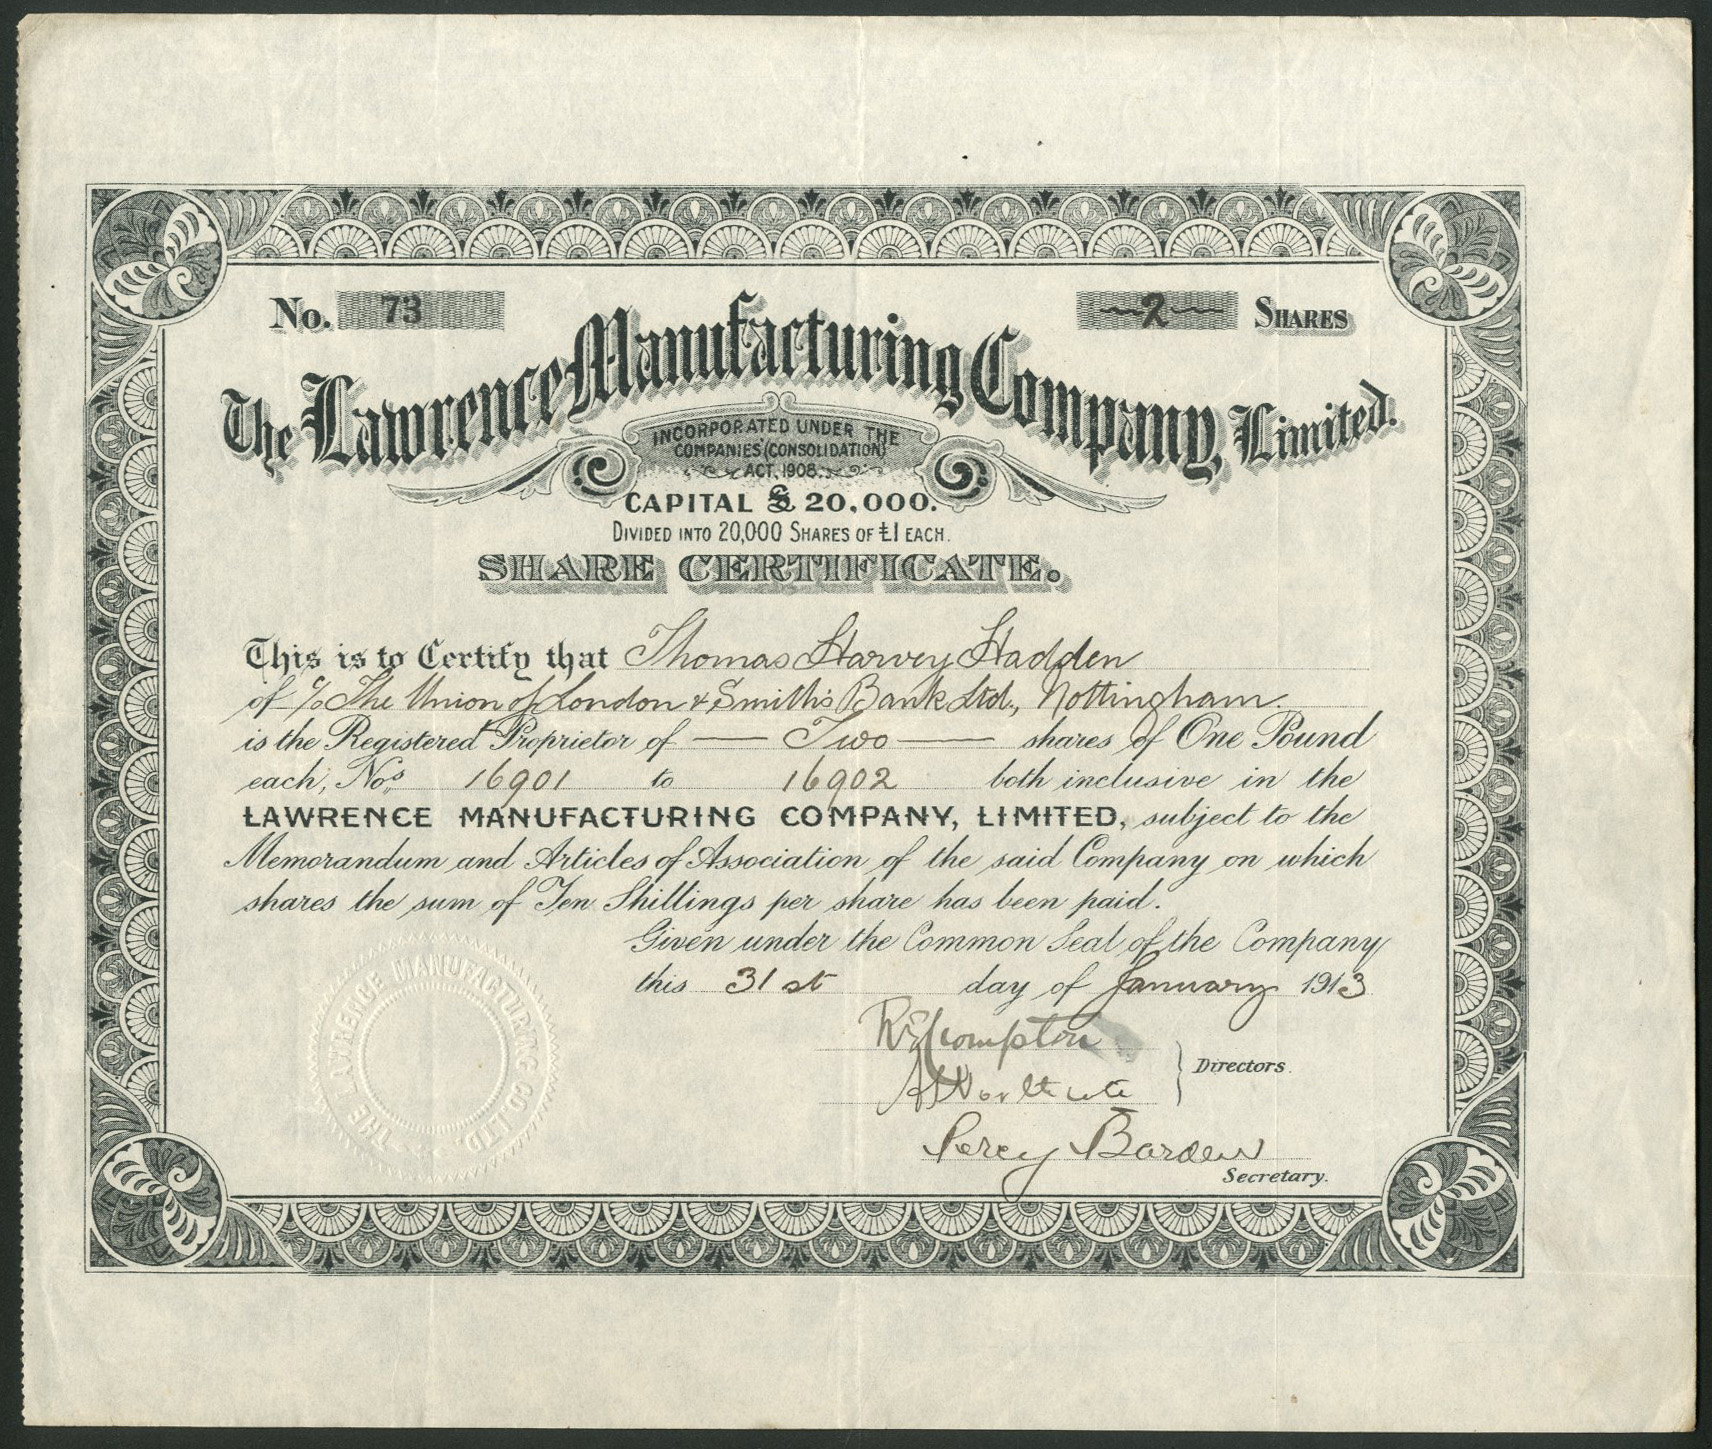 No. 73
2 SHARES
The Lawrence Manufacturing Company, Limited.
INCORPORATED UNDER THE
COMPANIES (CONSOLIDATION)
ACT, 1908.
CAPITAL £ 20,000.
DIVIDED INTO 20,000 SHARES OF £1 EACH.
SHARE CERTIFICATE.
This is to Certify that Thomas Harvey Hadden
of c/o The Union of London & Smith's Bank Ltd., Nottingham.
is the Registered Proprietor of — Two — shares of One Pound
each, Nos. 16901 to 16902 both inclusive in the
LAWRENCE MANUFACTURING COMPANY, LIMITED, subject to the
Memorandum and Articles of Association of the said Company on which
shares the sum of Ten Shillings per share has been paid.
Given under the Common Seal of the Company
this 31st day of January 1913
Compton
Directors.
Percy Barden
Secretary.
THE LAWRENCE MANUFACTURING CO. LTD.